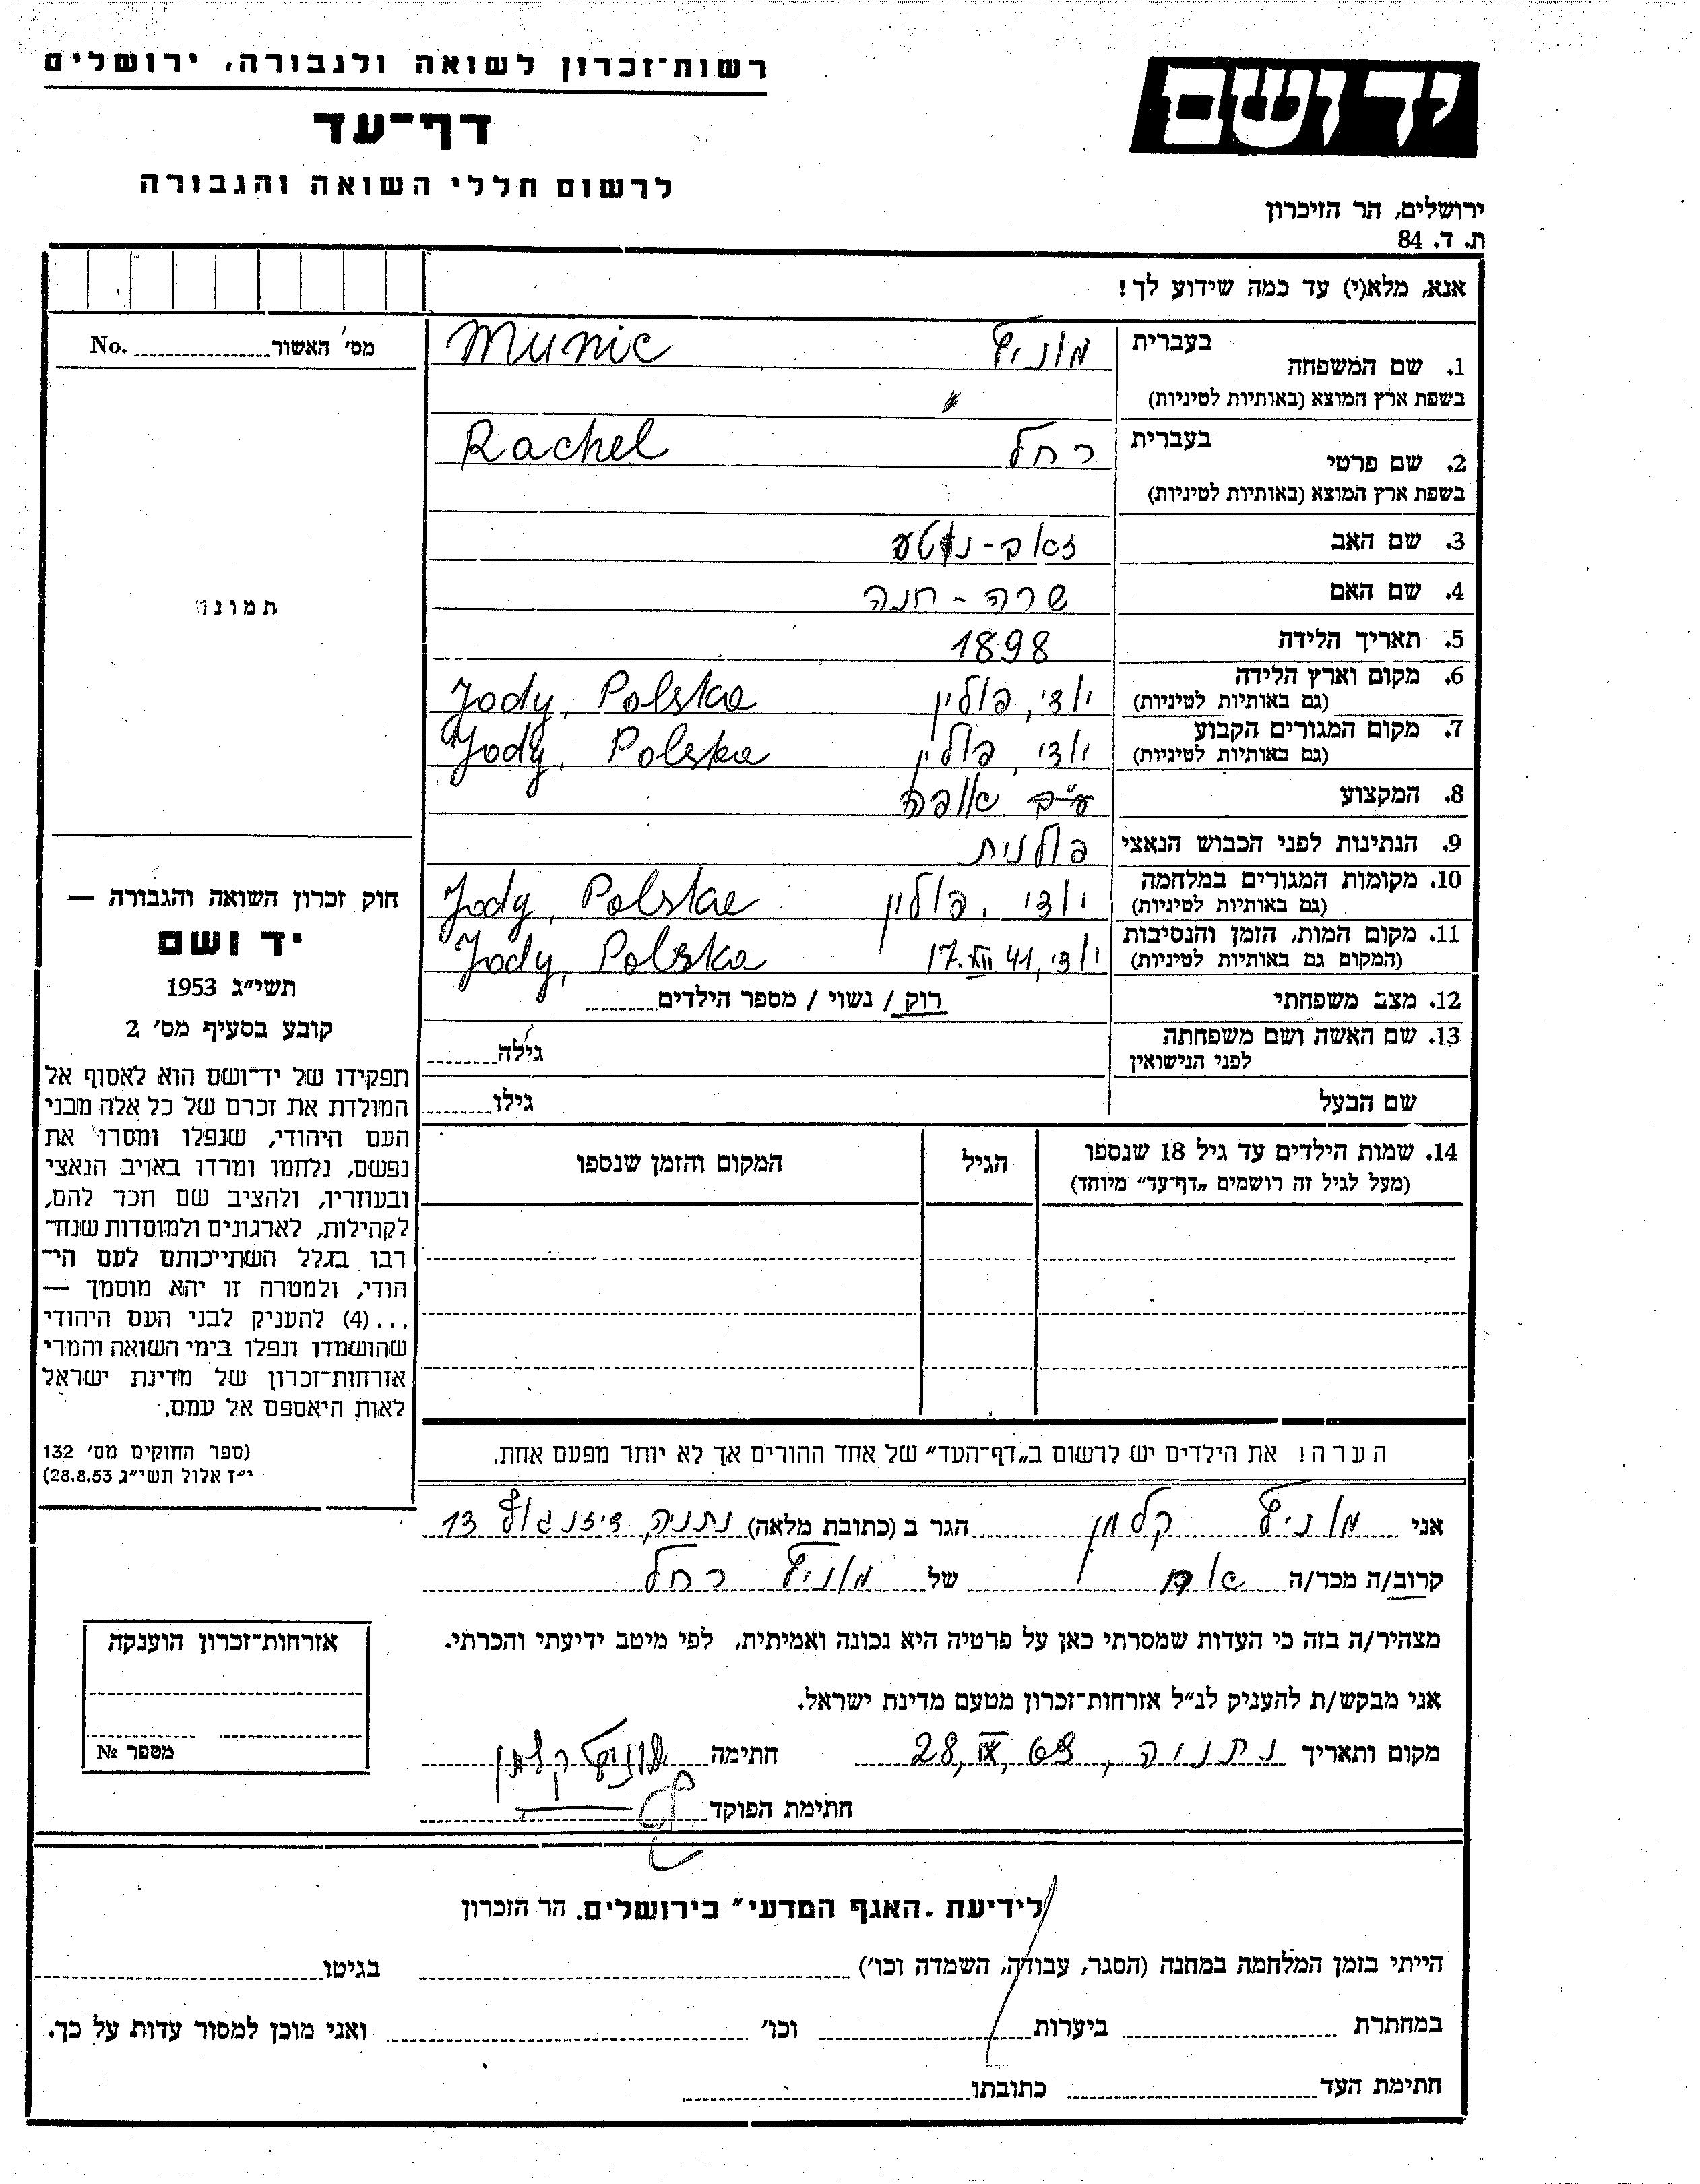 רשות־זכרון לשואה ולגבורה, ירושלים
דף־עד
לרשום חללי השואה והגבורה
יד ושם
ירושלים, הר הזיכרון
ת. ד. 84
אנא, מלא(י) עד כמה שידוע לך!
1. שם המשפחה בעברית מוניץ Munic
בשפת ארץ המוצא (באותיות לטיניות)
2. שם פרטי בעברית רחל Rachel
בשפת ארץ המוצא (באותיות לטיניות)
3. שם האב זאב-
4. שם האם שרה - חנה
5. תאריך הלידה 1898
6. מקום וארץ הלידה יודי, פולין Jody, Polska
(גם באותיות לטיניות)
7. מקום המגורים הקבוע יודי, פולין Jody, Polska
(גם באותיות לטיניות)
8. המקצוע
9. הנתינות לפני הכבוש הנאצי פולנית
10. מקומות המגורים במלחמה יודי, פולין Jody, Polska
(גם באותיות לטיניות)
11. מקום המות, הזמן והנסיבות יודי, 17.XII 41 Jody, Polska
(המקום גם באותיות לטיניות)
12. מצב משפחתי רוק / נשוי / מספר הילדים
13. שם האשה ושם משפחתה גילה
לפני הנישואין
שם הבעל גילו
14. שמות הילדים עד גיל 18 שנספו הגיל המקום והזמן שנספו
(מעל לגיל זה רושמים „דף־עד” מיוחד)
הערה! את הילדים יש לרשום ב„דף־העד” של אחד ההורים אך לא יותר מפעם אחת.
מס׳ האשור No.
תמונה
חוק זכרון השואה והגבורה —
יד ושם
תשי״ג 1953
קובע בסעיף מס׳ 2
תפקידו של יד־ושם הוא לאסוף אל
המולדת את זכרם של כל אלה מבני
העם היהודי, שנפלו ומסרו את
נפשם, נלחמו ומרדו באויב הנאצי
ובעוזריו, ולהציב שם וזכר להם,
לקהילות, לארגונים ולמוסדות שנח־
רבו בגלל השתייכותם לעם הי־
הודי, ולמטרה זו יהא מוסמך —
...(4) להעניק לבני העם היהודי
שהושמדו ונפלו בימי השואה והמרי
אזרחות־זכרון של מדינת ישראל
לאות היאספם אל עמם.
(ספר החוקים מס׳ 132
י״ז אלול תשי״ג 28.8.53)
אני מוניץ קלמן הגר ב (כתובת מלאה) נתניה, דיזנגוף 13
קרוב/ה מכר/ה אח של מוניץ רחל
מצהיר/ה בזה כי העדות שמסרתי כאן על פרטיה היא נכונה ואמיתית, לפי מיטב ידיעתי והכרתי.
אני מבקש/ת להעניק לנ״ל אזרחות־זכרון מטעם מדינת ישראל.
מקום ותאריך נתניה, 28, IX, 69 חתימה מוניץ קלמן
חתימת הפוקד
אזרחות־זכרון הוענקה
מספר №
לידיעת „האגף המדעי” בירושלים. הר הזכרון
הייתי בזמן המלחמה במחנה (הסגר, עבודה, השמדה וכו׳) בגיטו
במחתרת ביערות וכו׳ ואני מוכן למסור עדות על כך.
חתימת העד כתובתו